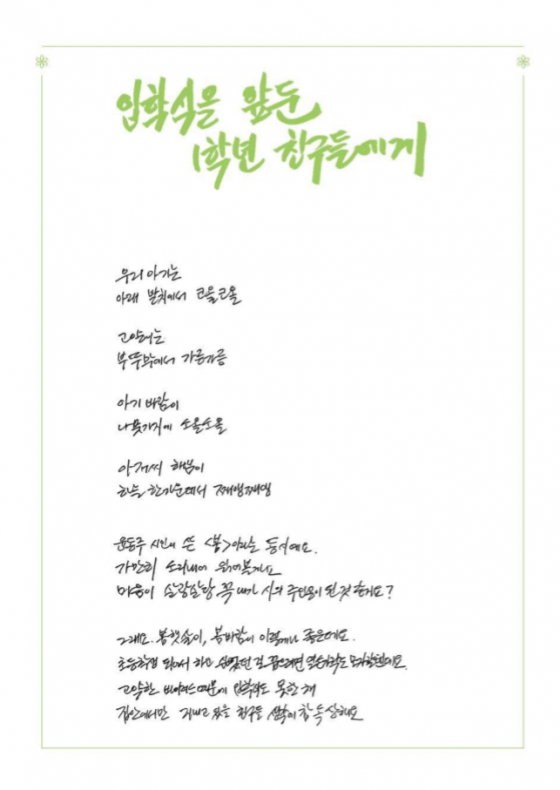 입학식을 앞둔
1학년 친구들에게
우리 아기는
아래 발치에서 코올코올
고양이는
부뚜막에서 가릉가릉
아기 바람이
나뭇가지에 소올소올
아저씨 햇님이
하늘 한가운데서 째앵째앵
윤동주 시인이 쓴 <봄>이라는 동시예요.
가만히 소리내어 읽어볼까요
마음이 살랑살랑, 꼭 내가 시의 주인공이 된 것 같지요?
그래요. 봄햇살이, 봄바람이 이렇게나 좋은데요.
초등학생 되어서 하고 싶었던 걸 꼽으려면 열손가락도 모자랄텐데요.
고약한 바이러스 때문에 입학식도 못한 채
집안에서만 지내고 있을 친구들 생각에 참 속상해요